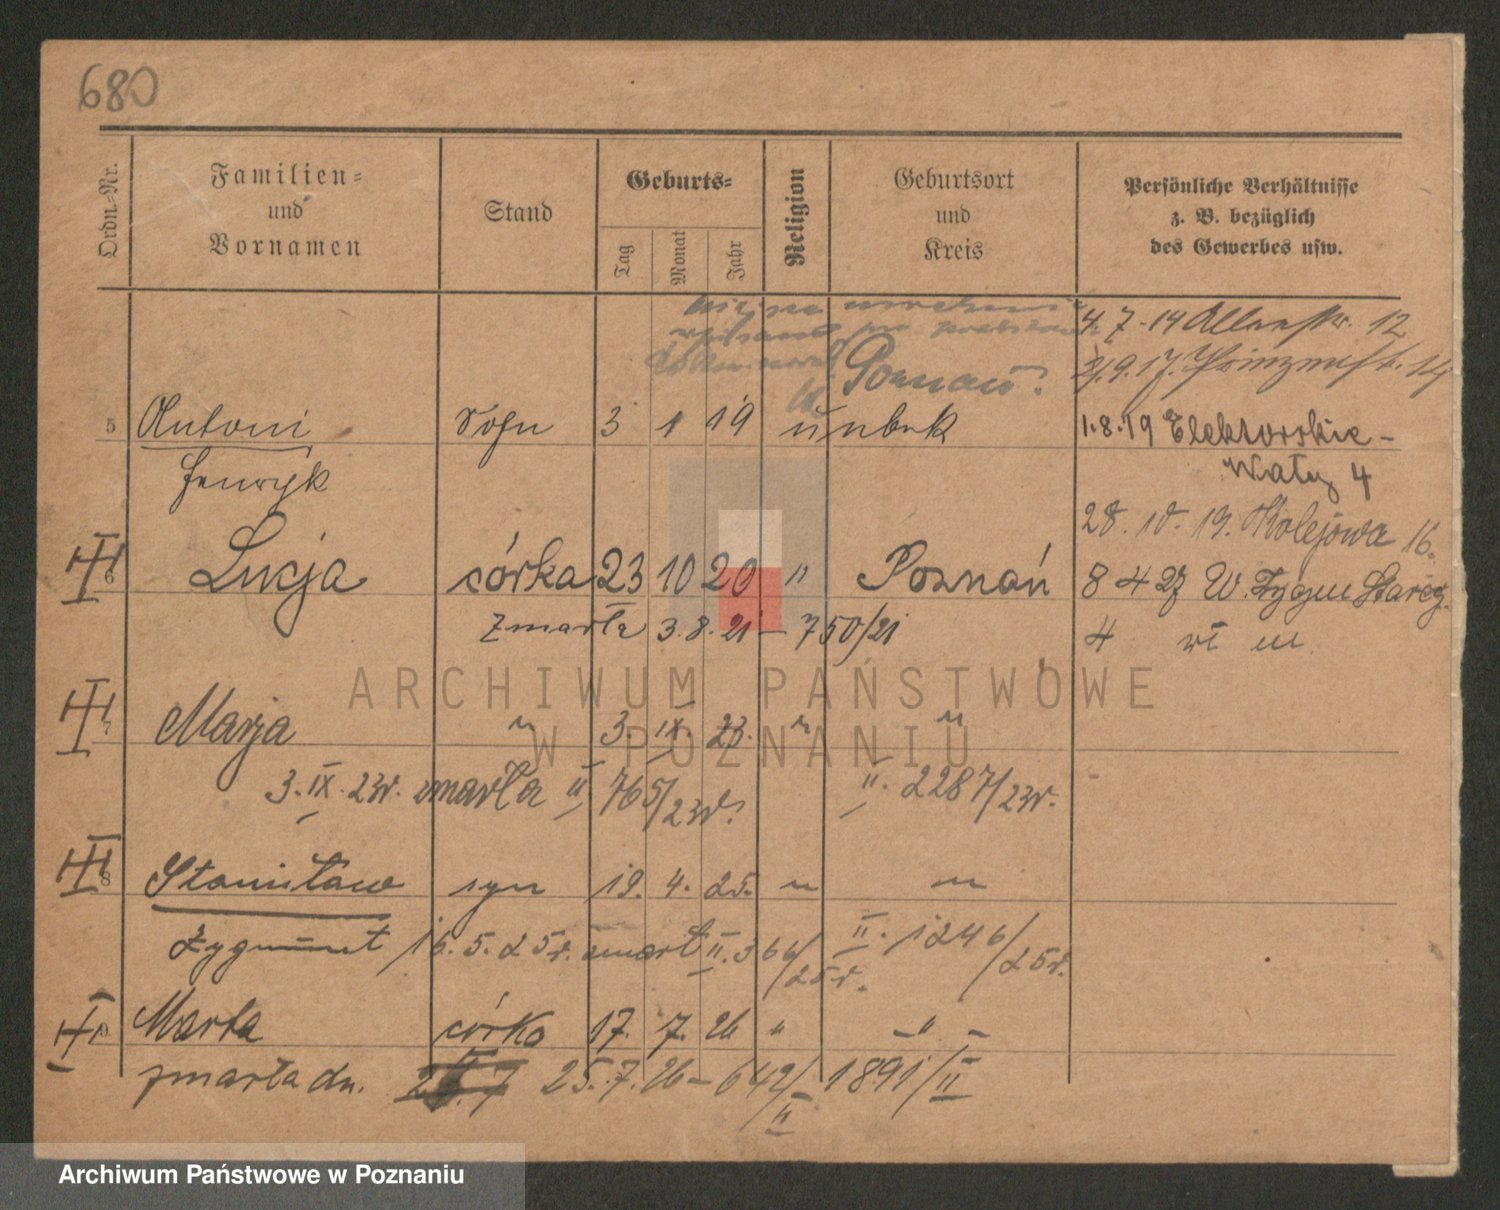 680
Ordn.-Nr.
Familien-
und
Vornamen
Stand
Geburts-
Tag
Monat
Jahr
Religion
Geburtsort
und
Kreis
Persönliche Verhältnisse
z. B. bezüglich
des Gewerbes usw.
4. 7. 14 12
9. 17. 14
Poznań
5 Antoni Sohn 3 1 19 unbek 1.8.19 Elektorskie-
Henryk Wały 4
28. 10. 19. Kolejowa 16.
6 Lucja córka 23 10 20 " Poznań 8 4 27 W.
zmarła 3. 8. 21 – 750/21 4
ARCHIWUM PAŃSTWOWE
W POZNANIU
7 Marja " 3. IX. 23. " "
3. IX. 23r. zmarła II 765/23r. II. 2287/23r.
8 Stanisław syn 19. 4. 25. " "
Zygmunt 16. 5. 25r. zmarł II. 366/25r. II. 1246/25r.
9 Marta córka 17. 7. 26 " – " –
zmarła dn. 25. 7. 26 – 642/II 1891/II
Archiwum Państwowe w Poznaniu